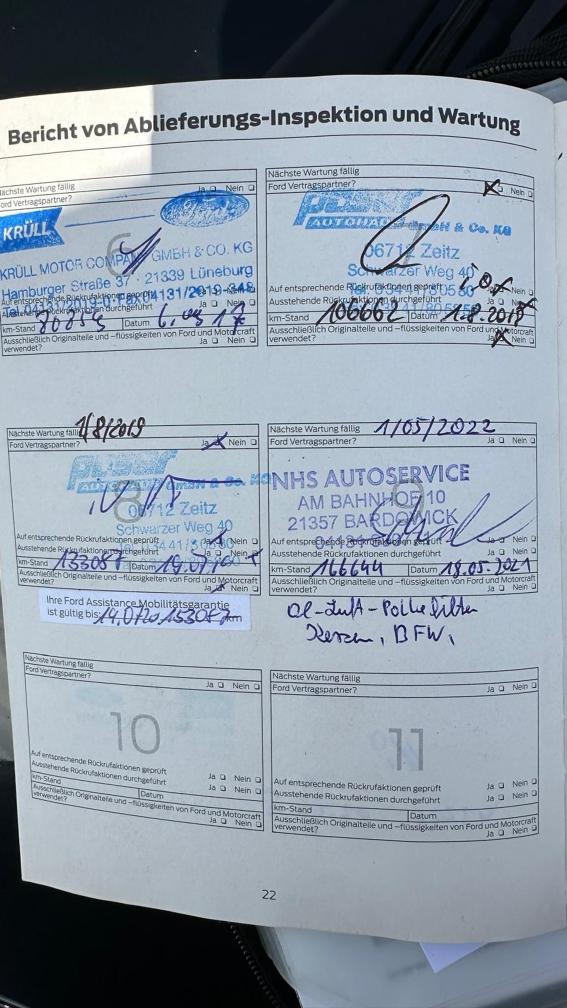 Bericht von Ablieferungs-Inspektion und Wartung
Nächste Wartung fällig
Ford Vertragspartner? Ja Nein
KRÜLL
6
KRÜLL MOTOR COMPANY GMBH & CO. KG
Hamburger Straße 37 · 21339 Lüneburg
Auf entsprechende Rückrufaktionen geprüft Ja Nein
Ausstehende Rückrufaktionen durchgeführt Ja Nein
km-Stand Datum
Ausschließlich Originalteile und -flüssigkeiten von Ford und Motorcraft
verwendet? Ja Nein
Nächste Wartung fällig
Ford Vertragspartner? Nein
AUTOHAUS GmbH & Co. KG
06712 Zeitz
Schwarzer Weg 40
Auf entsprechende Rückrufaktionen geprüft Nein
Ausstehende Rückrufaktionen durchgeführt Ja Nein
km-Stand 106662 Datum 1.8.2018
Ausschließlich Originalteile und -flüssigkeiten von Ford und Motorcraft
verwendet? Ja Nein
Nächste Wartung fällig 1/8/2019
Ford Vertragspartner? Ja Nein
8
GmbH & Co. KG
06712 Zeitz
Schwarzer Weg 40
Auf entsprechende Rückrufaktionen geprüft
Ausstehende Rückrufaktionen durchgeführt Ja Nein
km-Stand 133087 Datum
Ausschließlich Originalteile und -flüssigkeiten von Ford und Motorcraft
verwendet? Ja Nein
Ihre Ford Assistance Mobilitätsgarantie
ist gültig bis: km
Nächste Wartung fällig 1/05/2022
Ford Vertragspartner? Ja Nein
9
NHS AUTOSERVICE
AM BAHNHOF 10
21357 BARDOWICK
Auf entsprechende Rückrufaktionen geprüft Ja Nein
Ausstehende Rückrufaktionen durchgeführt Ja Nein
km-Stand 166644 Datum 18.05.2021
Ausschließlich Originalteile und -flüssigkeiten von Ford und Motorcraft
verwendet? Ja Nein
Öl-Luft-Pollenfilter
Kerzen, BFW,
Nächste Wartung fällig
Ford Vertragspartner? Ja Nein
10
Auf entsprechende Rückrufaktionen geprüft Ja Nein
Ausstehende Rückrufaktionen durchgeführt Ja Nein
km-Stand Datum
Ausschließlich Originalteile und -flüssigkeiten von Ford und Motorcraft
verwendet? Ja Nein
Nächste Wartung fällig
Ford Vertragspartner? Ja Nein
11
Auf entsprechende Rückrufaktionen geprüft Ja Nein
Ausstehende Rückrufaktionen durchgeführt Ja Nein
km-Stand Datum
Ausschließlich Originalteile und -flüssigkeiten von Ford und Motorcraft
verwendet? Ja Nein
22